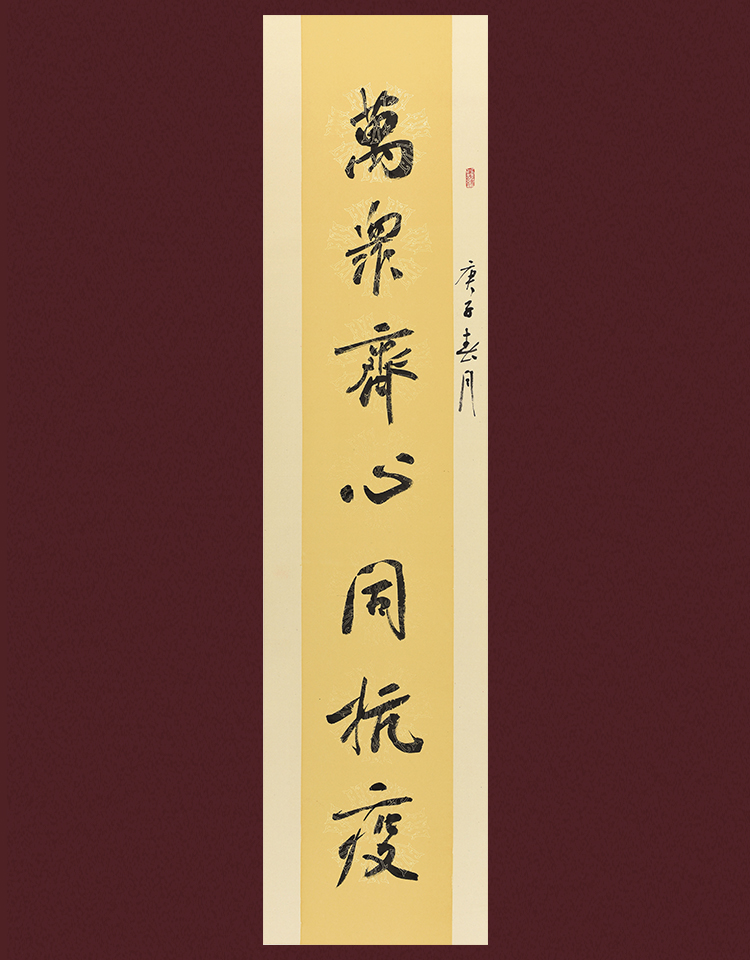 庚子春月
萬眾齊心同抗疫